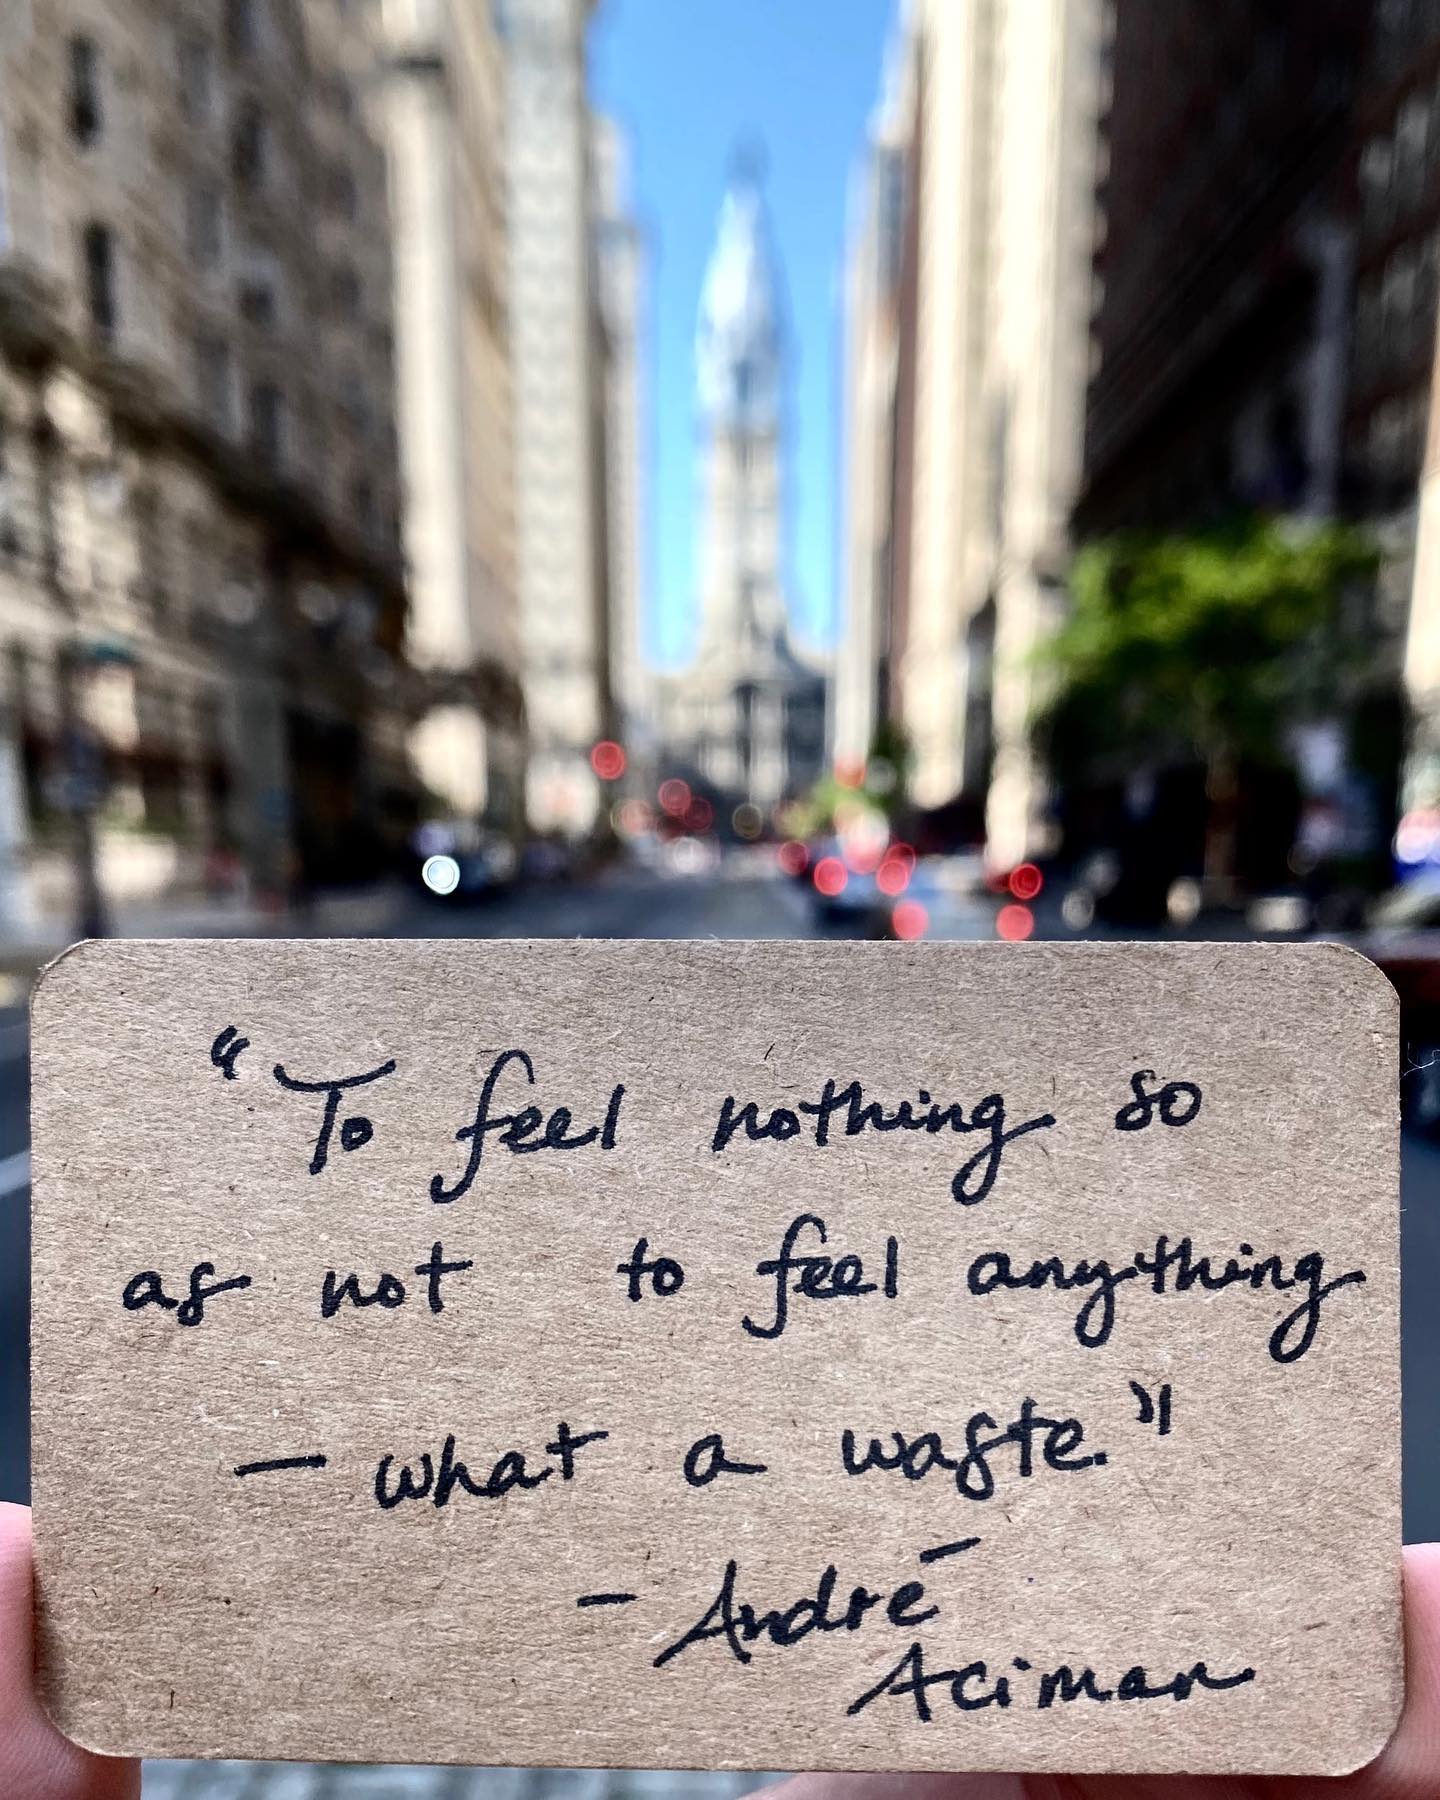 “To feel nothing so
as not to feel anything
— what a waste.”
- André
Aciman